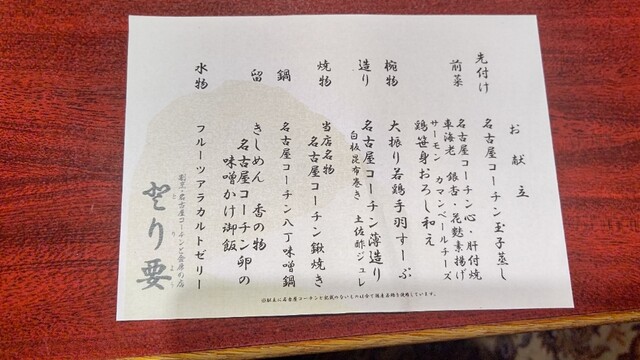 お献立
先付け 名古屋コーチン玉子蒸し
前菜 名古屋コーチン心・肝付焼
車海老 銀杏・花麩素揚げ
サーモン カマンベールチーズ
鶏笹身おろし和え
椀物 大振り若鶏手羽すーぷ
造り 名古屋コーチン薄造り
白板昆布巻き 土佐酢ジュレ
焼物 当店名物
名古屋コーチン鍬焼き
鍋 名古屋コーチン八丁味噌鍋
留 きしめん 香の物
名古屋コーチン卵の
味噌かけ御飯
水物 フルーツアラカルトゼリー
創業・名古屋コーチンと
り要
※献立に名古屋コーチンと記載のないものは全て国産若鶏を使用しています。